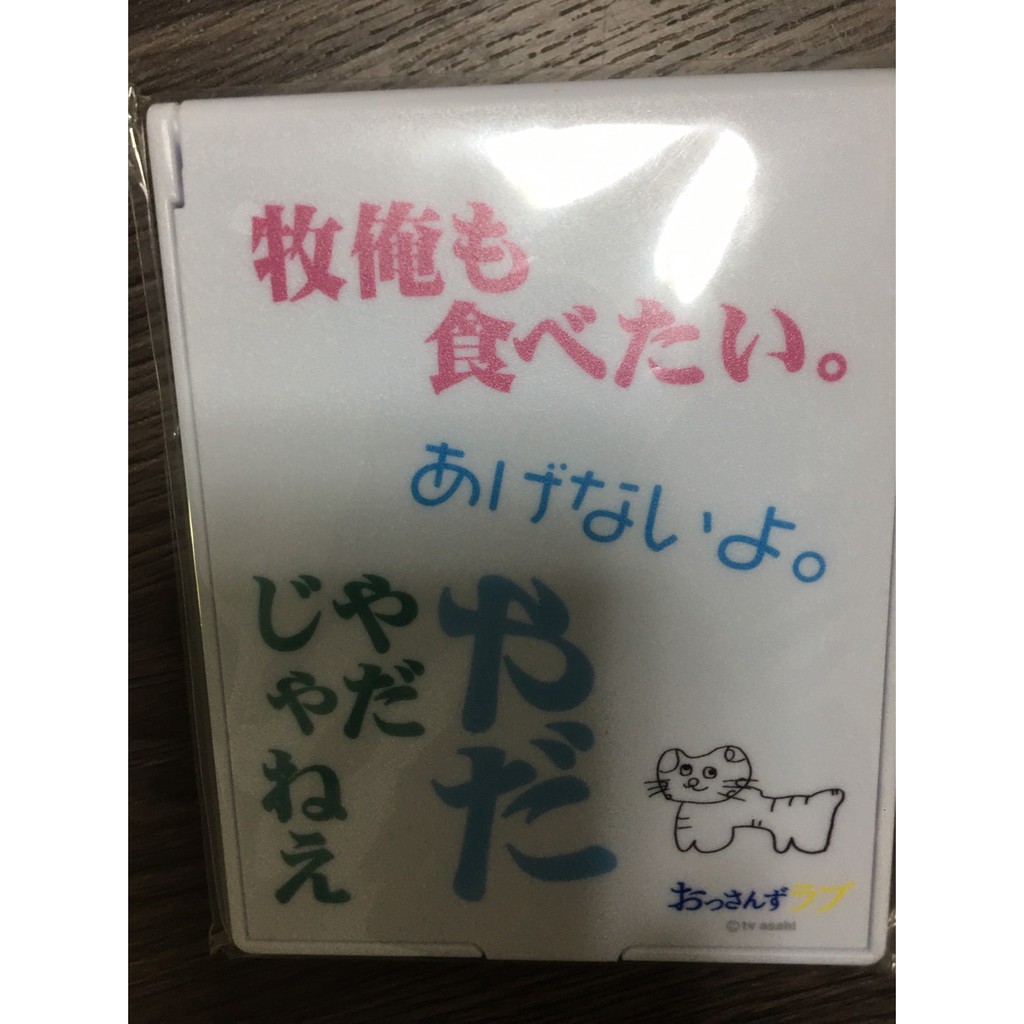 牧俺も
食べたい。
あげないよ。
やだ
やだ
じゃねえ
おっさんずラブ
©tv asahi